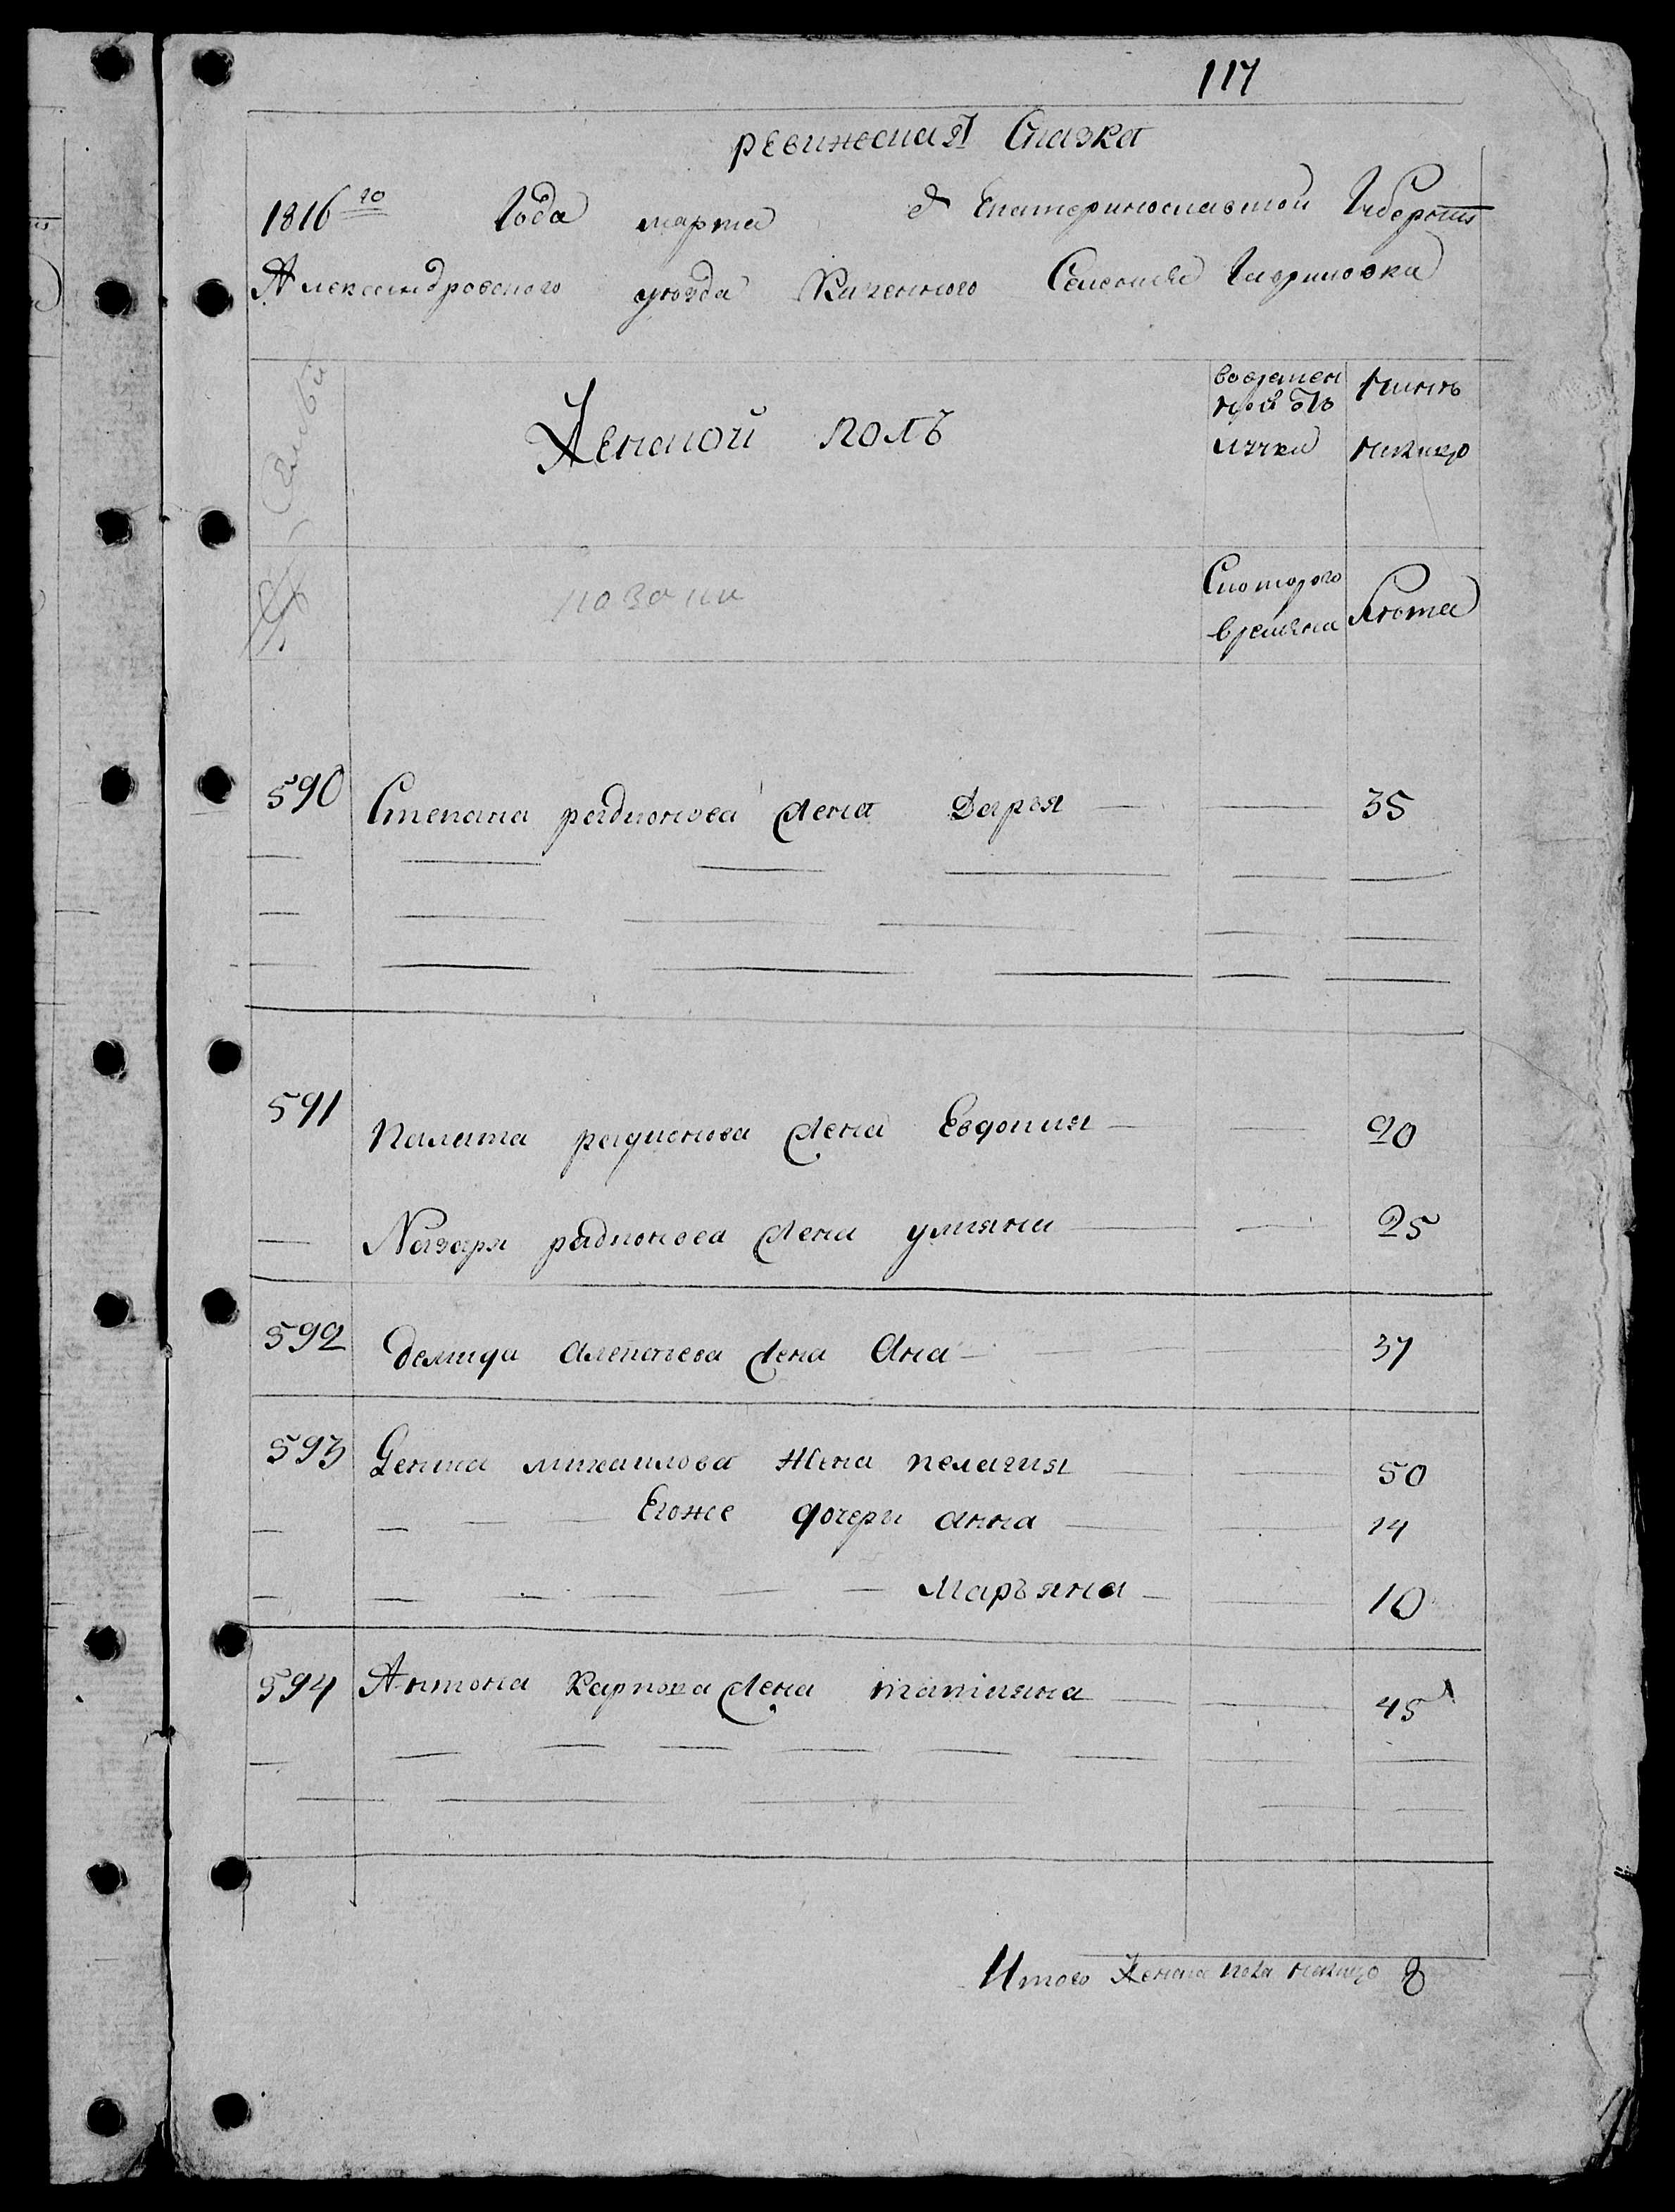 117
ревижская Сказка
1816го Года марта Екатеринославской Губернии
Александровского уезда Казенного Селения Гавриловка
Семьи
Женской полъ
вовремен
ной отъ
лучки
Ныне
налицо
Скоторого
времяна
Лета
590 Степана радионова жена Дарья — — 35
591 Палата радионова жена Евдокия — — 20
— Назаря радионова жена улияна — — 25
592 демида Алексеева жена Ана — — 37
593 Дениса михаилова жена пелагия — — 50
— — — — Егоже дочери анна — — 14
— — — — — — Маръяна — — 10
594 Антона Карпова жена татияна — — 45
Итого Женска пола налицо 8